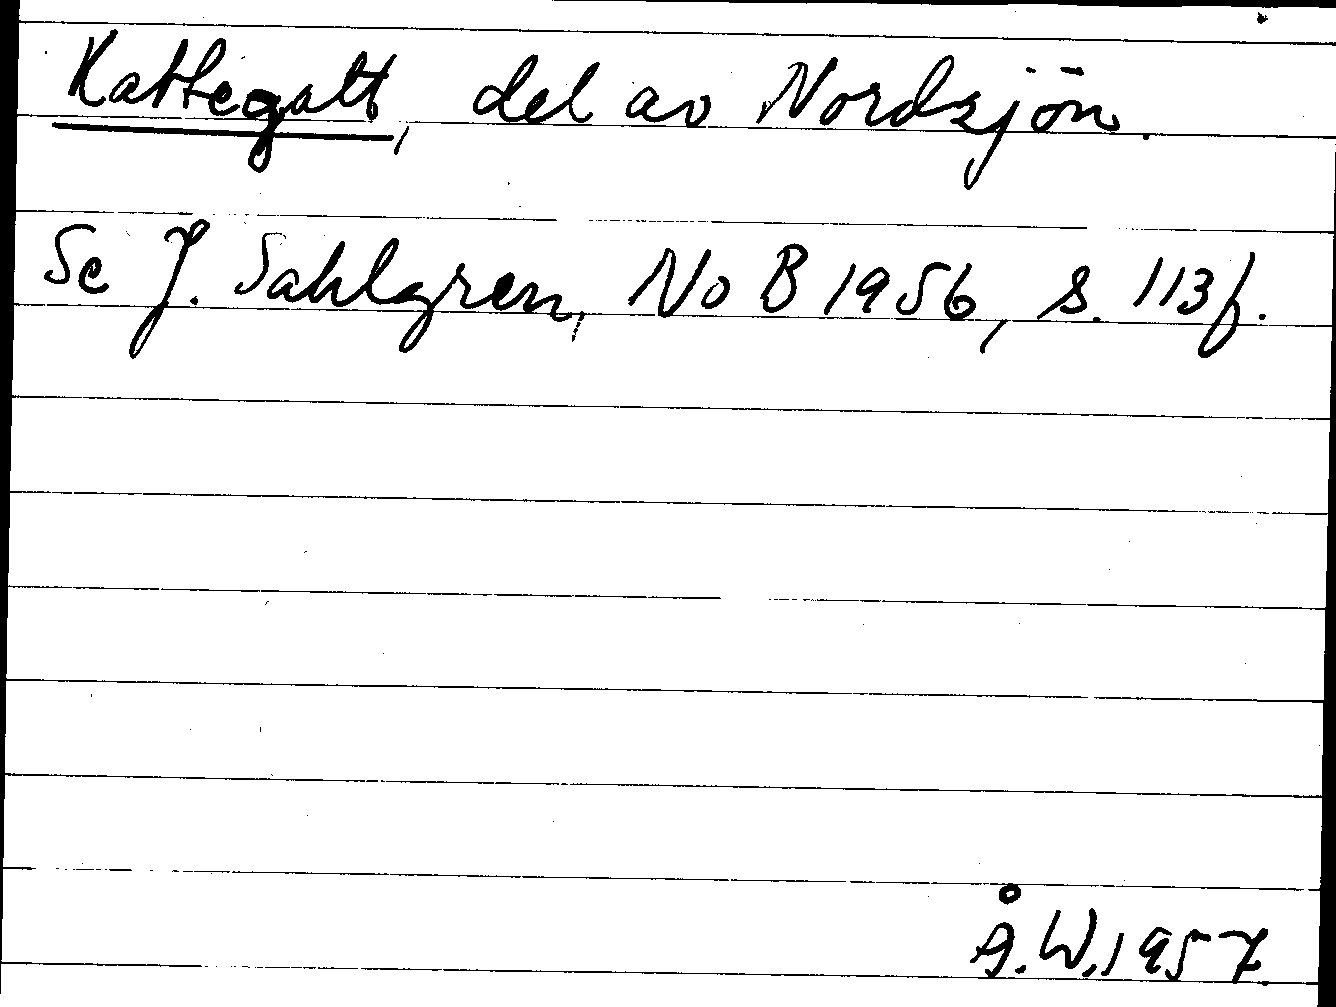 Kattegatt, del av Nordsjön.
Se J. Sahlgren, NoB 1956, s. 113f.
Å.W.1957.